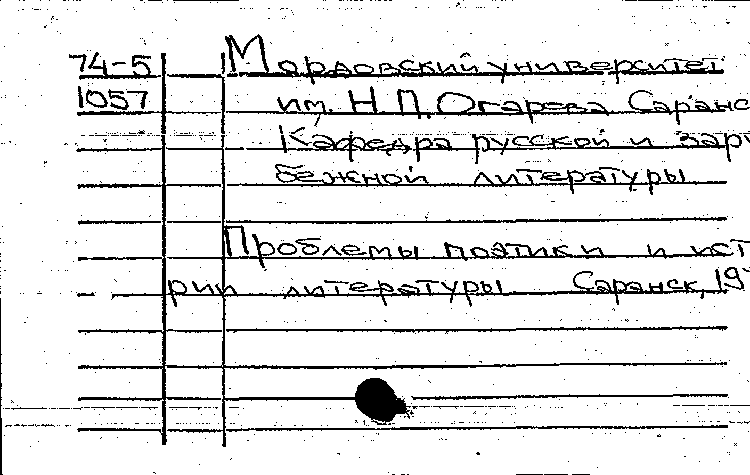 74-5 Мордовский университет
1057 им. Н.П.Огарева Саранс
Кафедра русской и зару
бежной литературы
Проблемы поэтики и ист
рии литературы Саранск, 19